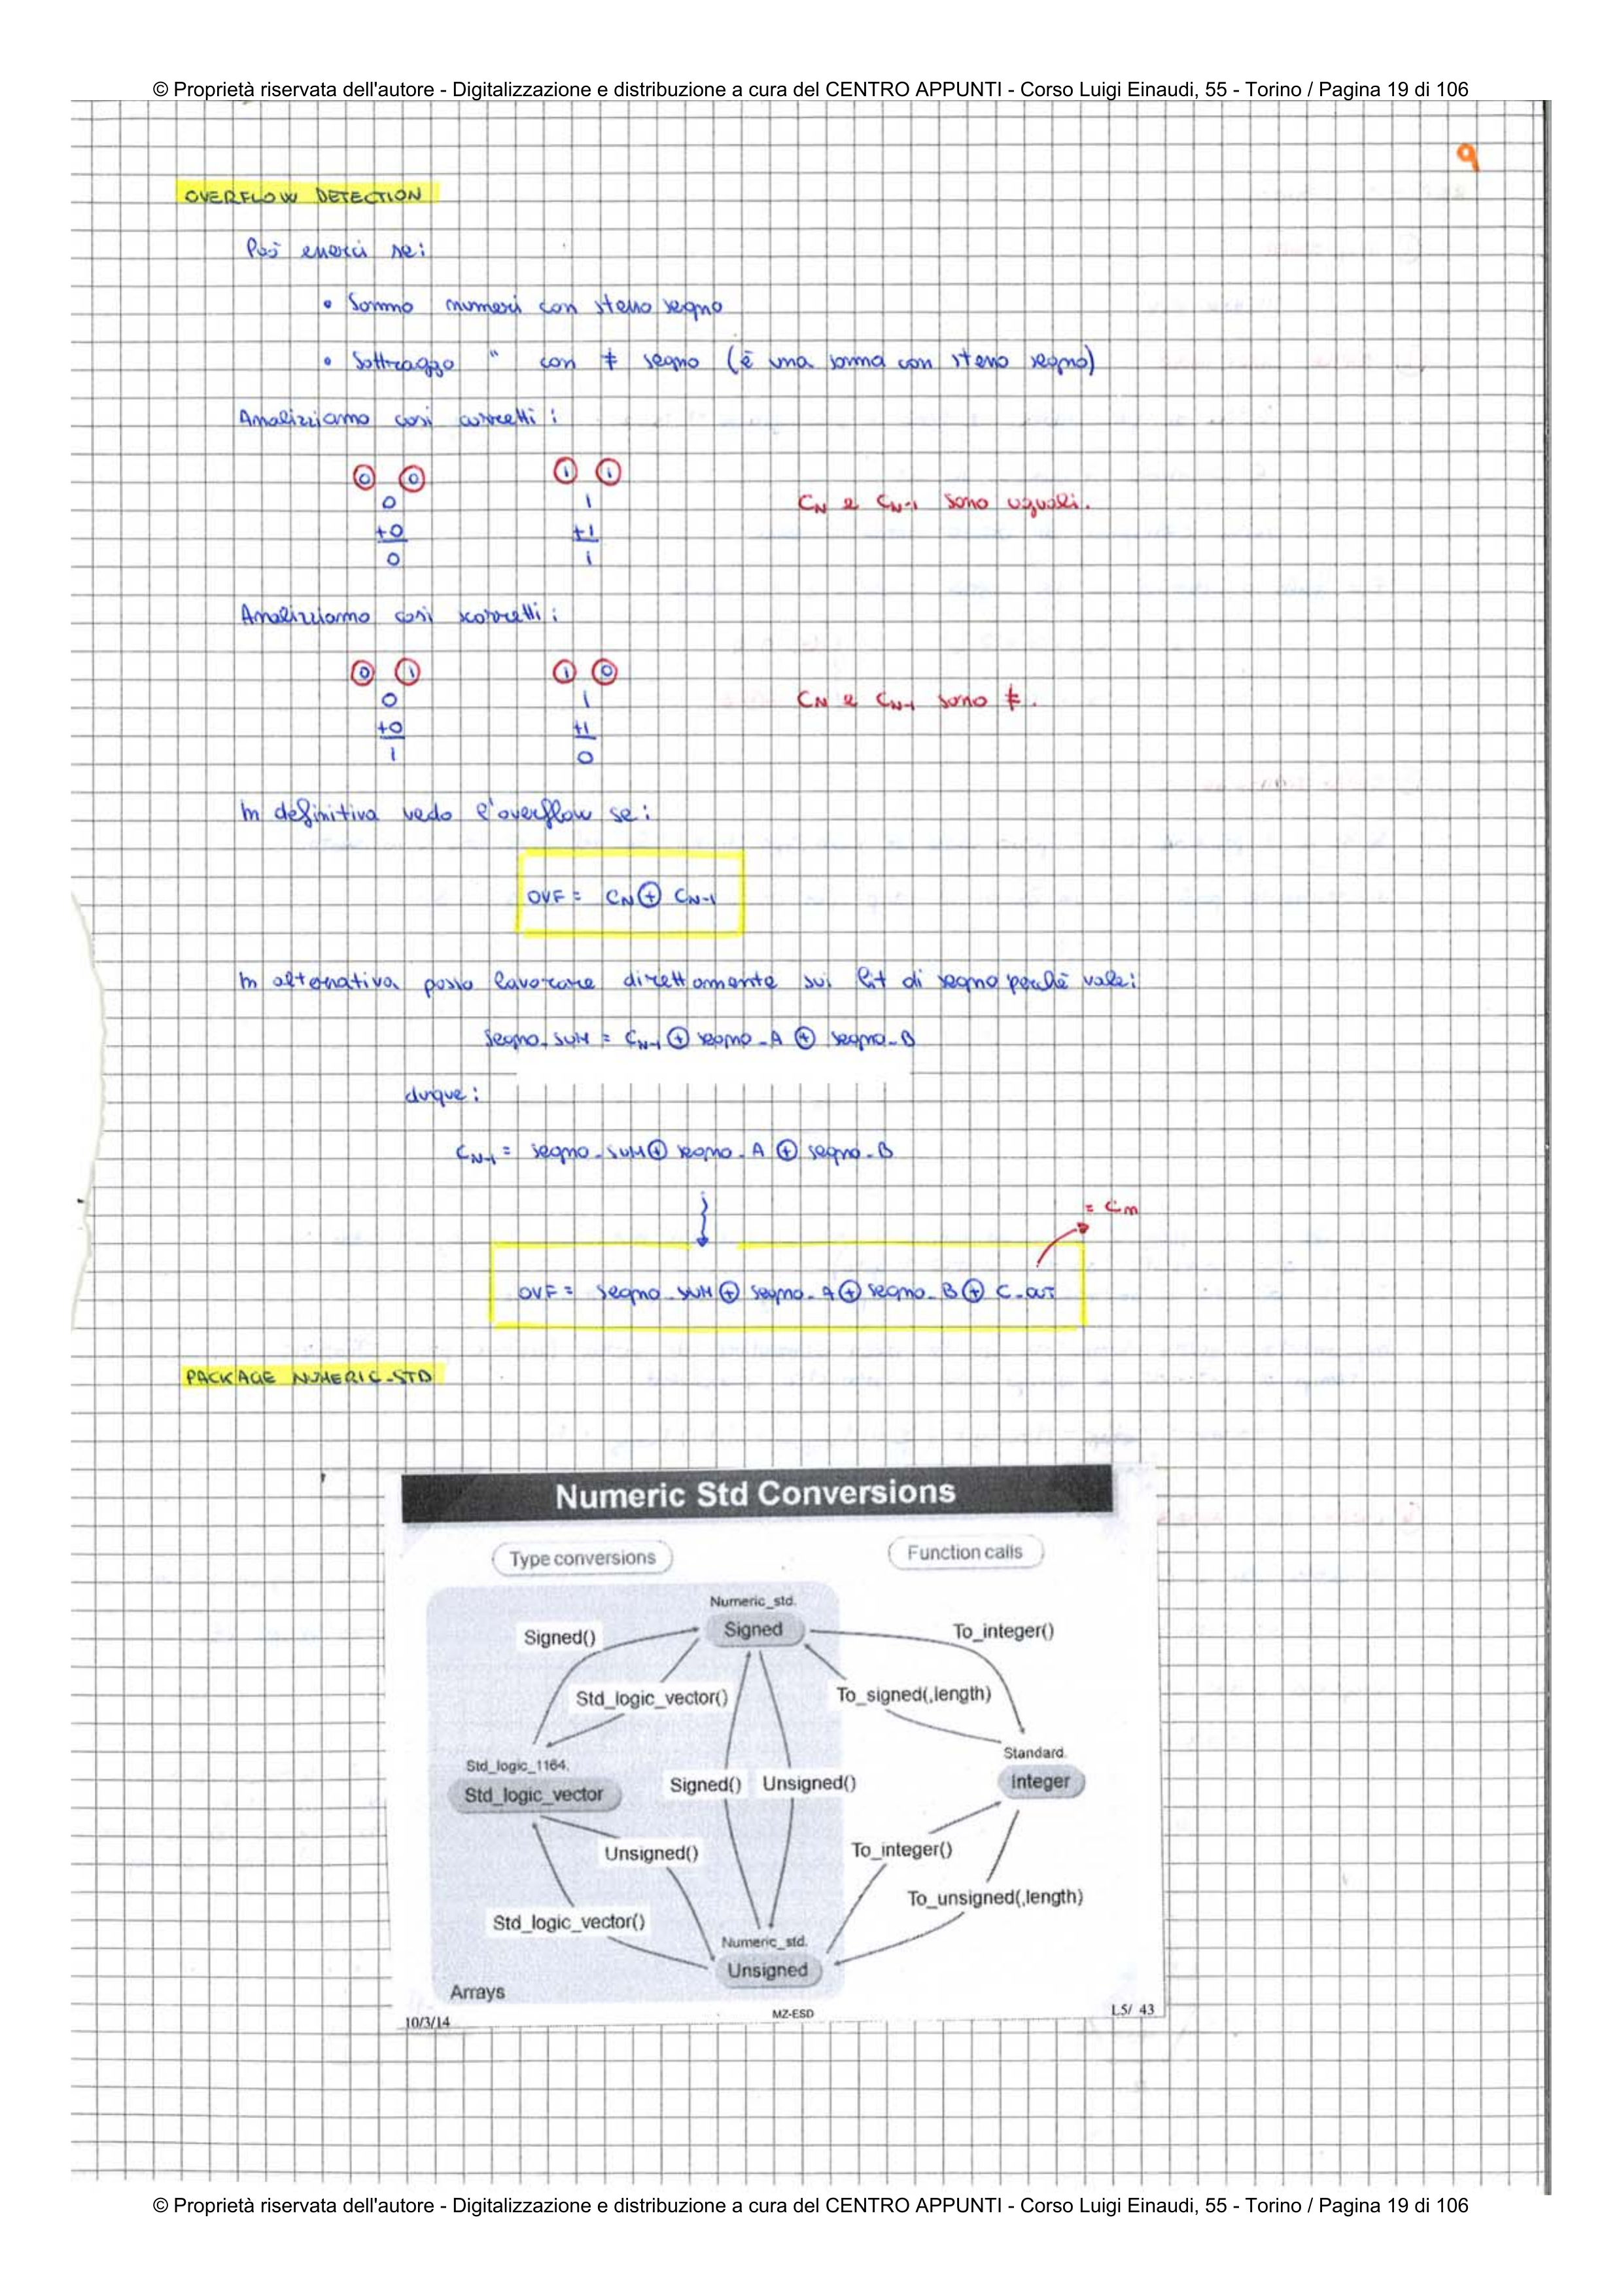 © Proprietà riservata dell'autore - Digitalizzazione e distribuzione a cura del CENTRO APPUNTI - Corso Luigi Einaudi, 55 - Torino / Pagina 19 di 106
9
OVERFLOW DETECTION
Può esserci se:
• Sommo numeri con stesso segno
• Sottraggo " con ≠ segno (è una somma con stesso segno)
Analizziamo casi corretti:
0 0 1 1
0 1 CN e CN-1 sono uguali.
+0 +1
0 1
Analizziamo casi scorretti:
0 1 1 0
0 1 CN e CN-1 sono ≠.
+0 +1
1 0
In definitiva vedo l'overflow se:
OVF = CN ⊕ CN-1
In alternativa posso lavorare direttamente sui bit di segno perchè vale:
Segno_SUM = CN-1 ⊕ segno_A ⊕ segno_B
dunque:
CN-1 = segno_SUM ⊕ segno_A ⊕ segno_B
= Cm
OVF = segno_SUM ⊕ segno_A ⊕ segno_B ⊕ C_OUT
PACKAGE NUMERIC_STD
Numeric Std Conversions
Type conversions Function calls
Numeric_std.
Signed() Signed To_integer()
Std_logic_vector() To_signed(,length)
Std_logic_1164. Standard.
Std_logic_vector Signed() Unsigned() Integer
Unsigned() To_integer()
Std_logic_vector() To_unsigned(,length)
Numeric_std.
Unsigned
Arrays
10/3/14 MZ-ESD L5/ 43
© Proprietà riservata dell'autore - Digitalizzazione e distribuzione a cura del CENTRO APPUNTI - Corso Luigi Einaudi, 55 - Torino / Pagina 19 di 106